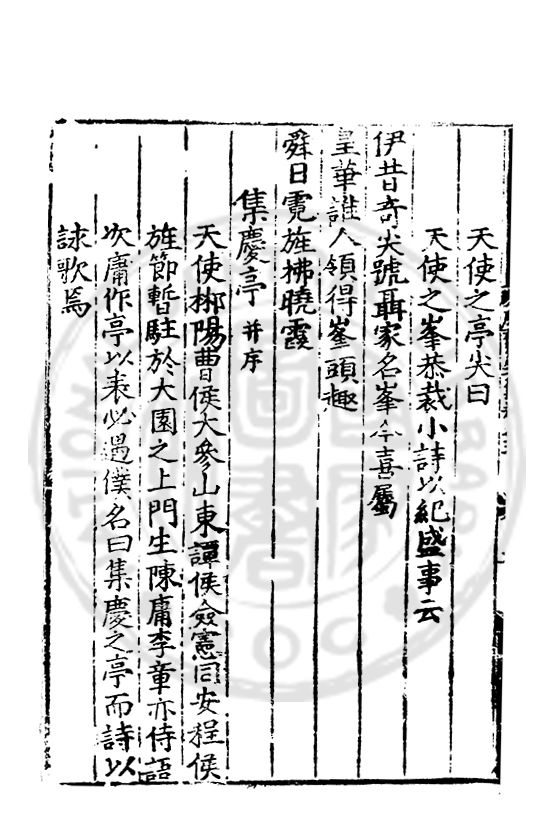 天使之亭尖曰
天使之峯恭裁小詩以紀盛事云
伊昔奇尖號聶家名峯今喜屬
皇華誰人領得峯頭趣
舜日霓旌拂曉霞
集慶亭并序
天使梛陽曹侯大參山東譚侯僉憲同安程侯
旌節暫駐於大園之上門生陳庸李章亦侍語
次庸作亭以表必過僕名曰集慶之亭而詩以
詠歌焉